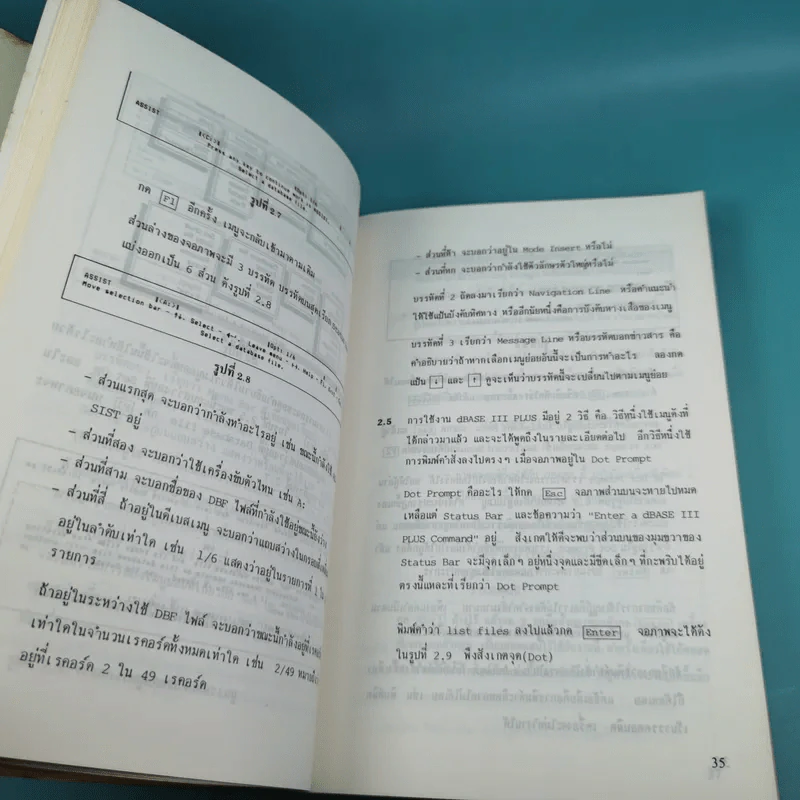 ASSIST
Press any key to continue
Select a database file
รูปที่ 2.7
กด F1 อีกครั้ง เมนูจะกลับเข้ามาตามเดิม
ส่วนล่างของจอภาพจะมี 3 บรรทัด บรรทัดบนสุดเรียก
แบ่งออกเป็น 6 ส่วน ดังรูปที่ 2.8
ASSIST |<A:>| |Opt: 1/6
Move selection bar - Select - Leave menu - Help -
Select a database file.
รูปที่ 2.8
- ส่วนแรกสุด จะบอกว่ากำลังทำอะไรอยู่ เช่น ขณะนี้กำลัง
SIST อยู่
- ส่วนที่สอง จะบอกว่าใช้เครื่องขับตัวไหน เช่น A:
- ส่วนที่สาม จะบอกชื่อของ DBF ไฟล์ที่กำลังใช้อยู่ขณะนี้
- ส่วนที่สี่ ถ้าอยู่ในดีเบสเมนู จะบอกว่าแถบสว่างในกรอบ
อยู่ในลำดับเท่าใด เช่น 1/6 แสดงว่าอยู่ในรายการที่ 1 ใน
รายการ
ถ้าอยู่ในระหว่างใช้ DBF ไฟล์ จะบอกว่าขณะนี้กำลังอยู่ที่
เท่าใดในจำนวนเรคอร์ดทั้งหมดเท่าใด เช่น 2/49
อยู่ที่เรคอร์ด 2 ใน 49 เรคอร์ด
- ส่วนที่ห้า จะบอกว่าอยู่ใน Mode Insert หรือไม่
- ส่วนที่หก จะบอกว่ากำลังใช้ตัวอักษรตัวใหญ่หรือไม่
บรรทัดที่ 2 ถัดลงมาเรียกว่า Navigation Line หรือคำแนะนำ
ให้ใช้แป้นบังคับทิศทาง หรืออีกนัยหนึ่งคือการบังคับทางเสือของเมนู
บรรทัดที่ 3 เรียกว่า Message Line หรือบรรทัดบอกข่าวสาร คือ
คำอธิบายว่าถ้าหากเลือกเมนูย่อยอันนี้จะเป็นการทำอะไร ลองกด
แป้น ↓ และ ↑ ดูจะเห็นว่าบรรทัดนี้จะเปลี่ยนไปตามเมนูย่อย
2.5 การใช้งาน dBASE III PLUS มีอยู่ 2 วิธี คือ วิธีหนึ่งใช้เมนูดังที่
ได้กล่าวมาแล้ว และจะได้พูดถึงในรายละเอียดต่อไป อีกวิธีหนึ่งใช้
การพิมพ์คำสั่งลงไปตรงๆ เมื่อจอภาพอยู่ใน Dot Prompt
Dot Prompt คืออะไร ให้กด Esc จอภาพส่วนบนจะหายไปหมด
เหลือแต่ Status Bar และข้อความว่า "Enter a dBASE III
PLUS Command" อยู่ สังเกตให้ดีจะพบว่าส่วนบนของมุมขวาของ
Status Bar จะมีจุดเล็กๆ อยู่หนึ่งจุดและมีขีดเล็กๆ ที่กะพริบได้อยู่
ตรงนี้แหละที่เรียกว่า Dot Prompt
พิมพ์คำว่า list files ลงไปแล้วกด Enter จอภาพจะได้ดัง
ในรูปที่ 2.9 พึงสังเกตจุด(Dot)
35